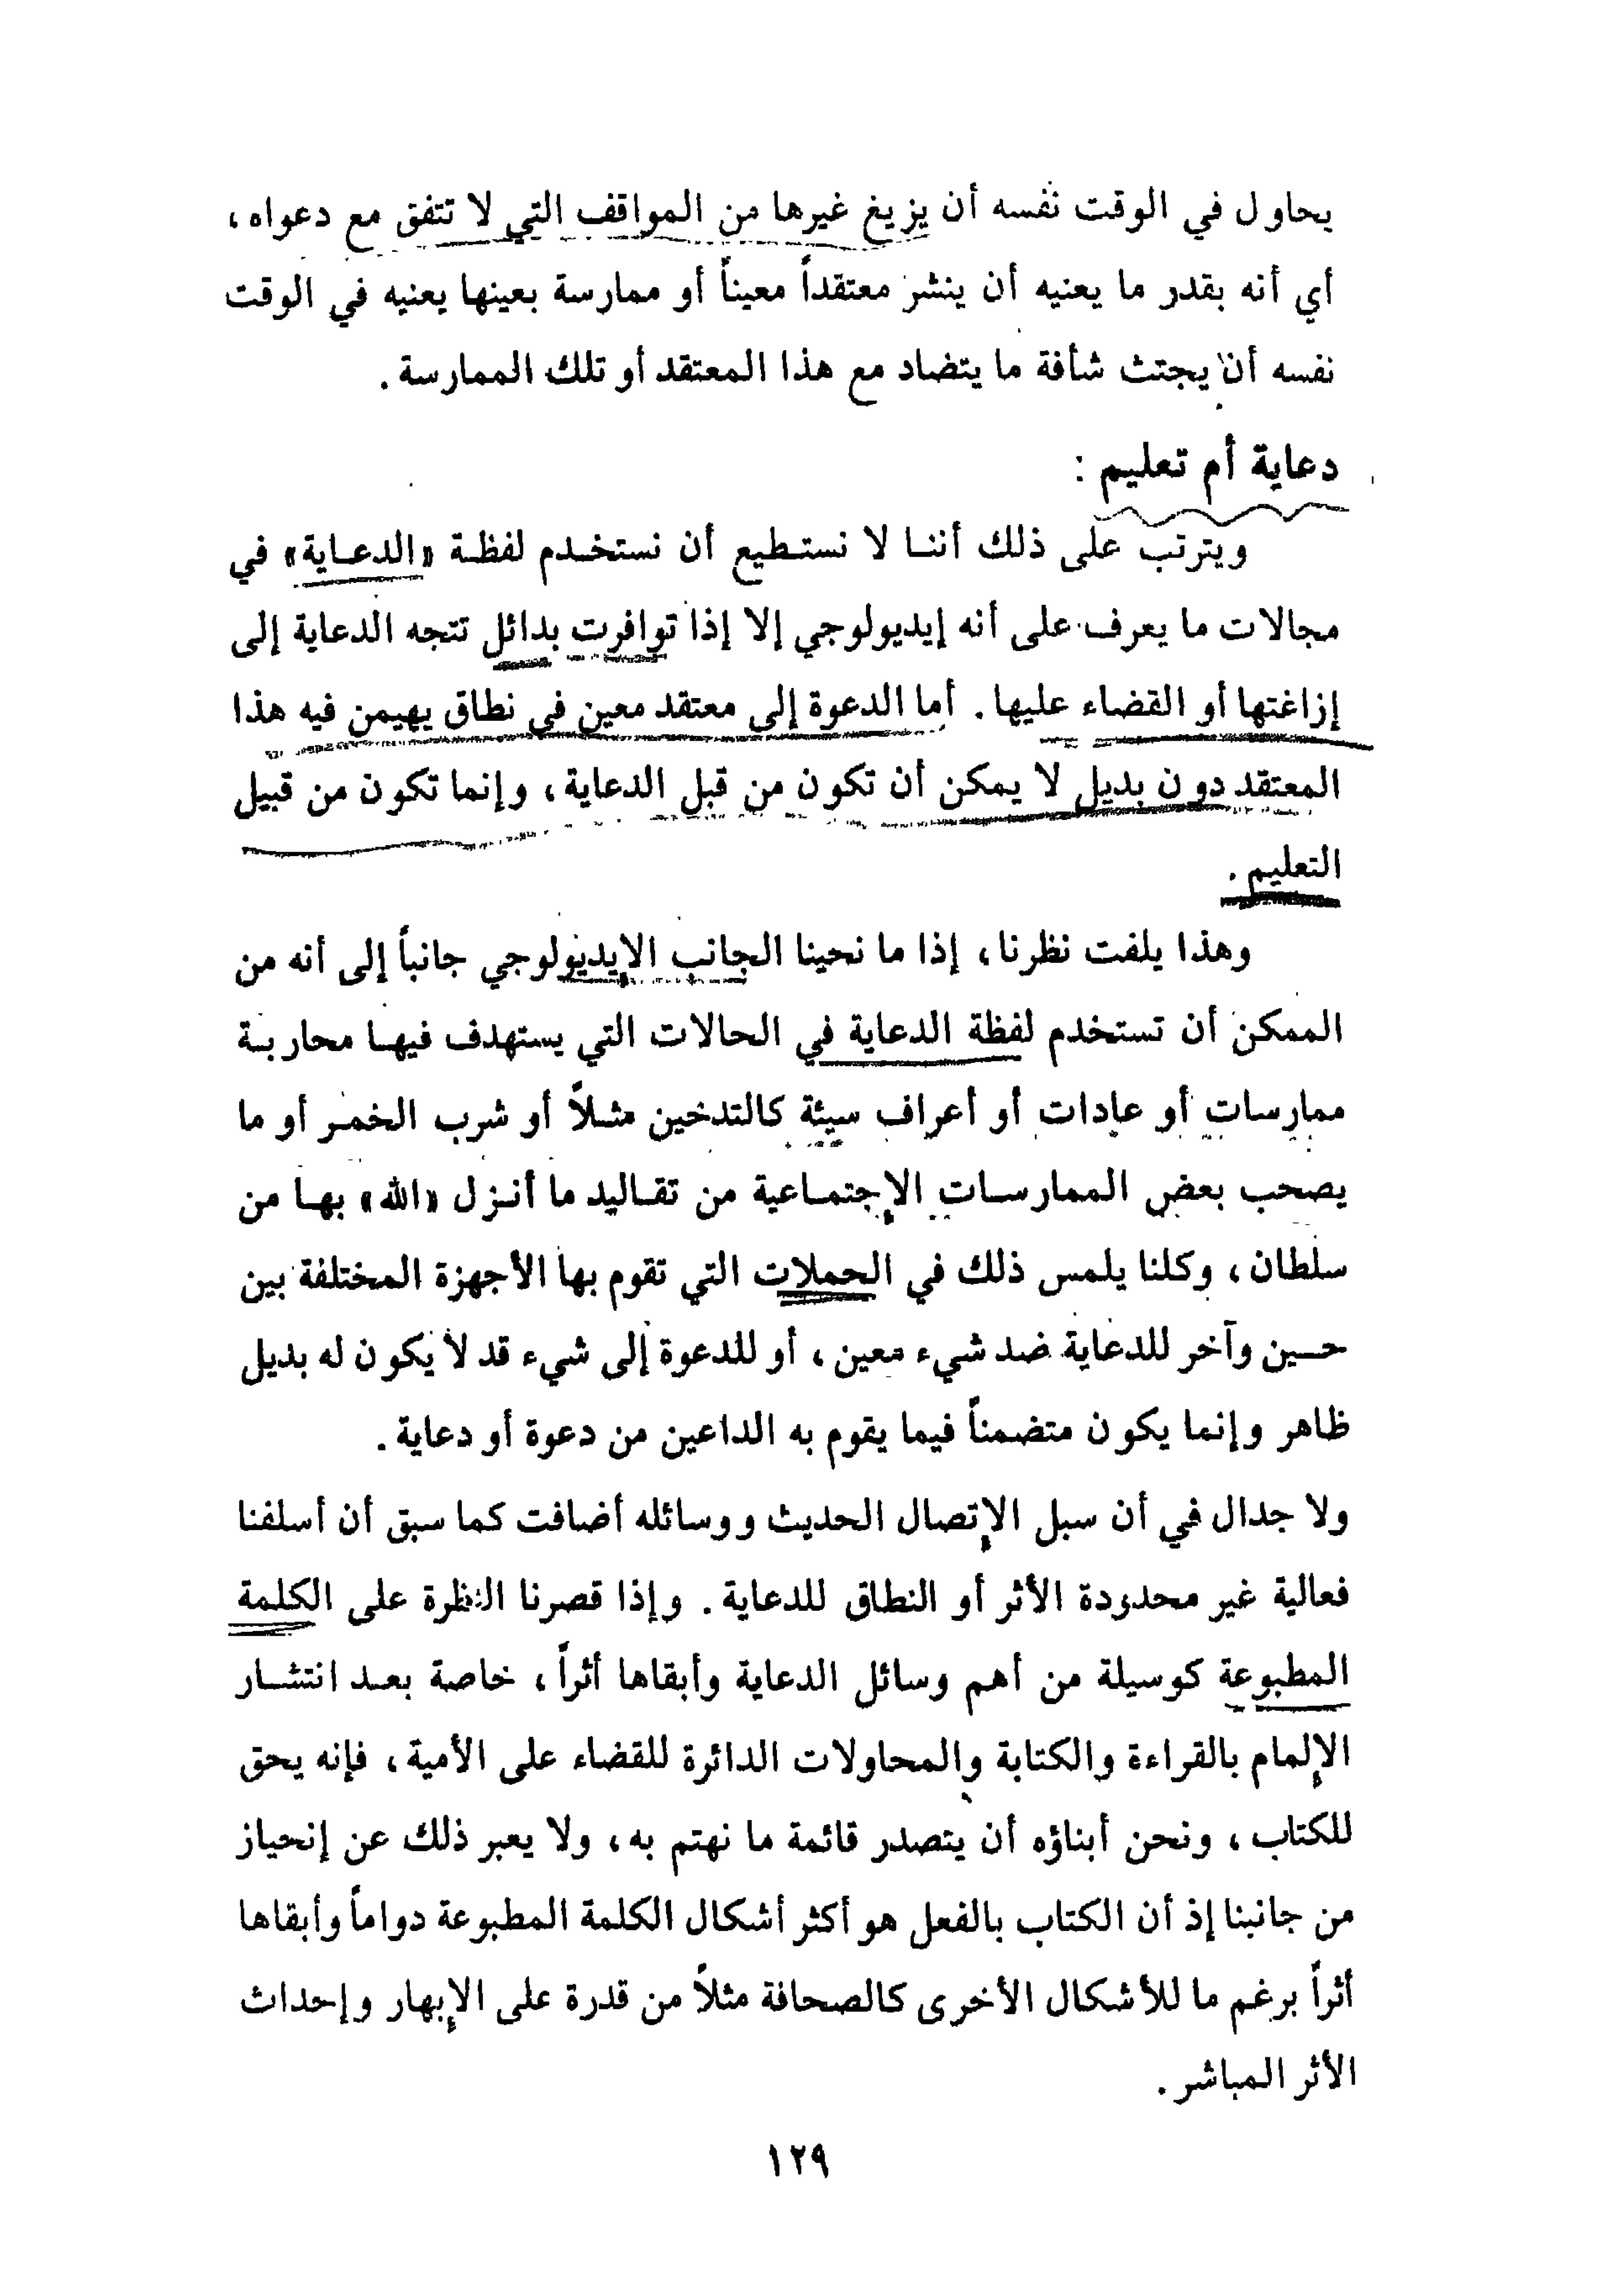 يحاول في الوقت نفسه أن يزيغ غيرها من المواقف التي لا تتفق مع دعواه،
أي أنه بقدر ما يعنيه أن ينشر معتقداً معيناً أو ممارسة بعينها يعنيه في الوقت
نفسه أن يجتث شأفة ما يتضاد مع هذا المعتقد أو تلك الممارسة.
دعاية أم تعليم :
ويترتب على ذلك أننا لا نستطيع أن نستخدم لفظة «الدعاية» في
مجالات ما يعرف على أنه إيديولوجي إلا إذا توافرت بدائل تتجه الدعاية إلى
إزاغتها أو القضاء عليها. أما الدعوة إلى معتقد معين في نطاق يهيمن فيه هذا
المعتقد دون بديل لا يمكن أن تكون من قبل الدعاية، وإنما تكون من قبيل
التعليم.
وهذا يلفت نظرنا، إذا ما نحينا الجانب الإيديولوجي جانباً إلى أنه من
الممكن أن تستخدم لفظة الدعاية في الحالات التي يستهدف فيها محاربة
ممارسات أو عادات أو أعراف سيئة كالتدخين مثلاً أو شرب الخمر أو ما
يصحب بعض الممارسات الإجتماعية من تقاليد ما أنزل «الله» بها من
سلطان، وكلنا يلمس ذلك في الحملات التي تقوم بها الأجهزة المختلفة بين
حين وآخر للدعاية ضد شيء معين، أو للدعوة إلى شيء قد لا يكون له بديل
ظاهر وإنما يكون متضمناً فيما يقوم به الداعين من دعوة أو دعاية.
ولا جدال في أن سبل الإتصال الحديث ووسائله أضافت كما سبق أن أسلفنا
فعالية غير محدودة الأثر أو النطاق للدعاية. وإذا قصرنا النظرة على الكلمة
المطبوعة كوسيلة من أهم وسائل الدعاية وأبقاها أثراً، خاصة بعد انتشار
الإلمام بالقراءة والكتابة والمحاولات الدائرة للقضاء على الأمية، فإنه يحق
للكتاب، ونحن أبناؤه أن يتصدر قائمة ما نهتم به، ولا يعبر ذلك عن إنحياز
من جانبنا إذ أن الكتاب بالفعل هو أكثر أشكال الكلمة المطبوعة دواماً وأبقاها
أثراً برغم ما للأشكال الأخرى كالصحافة مثلاً من قدرة على الإبهار وإحداث
الأثر المباشر.
١٢٩